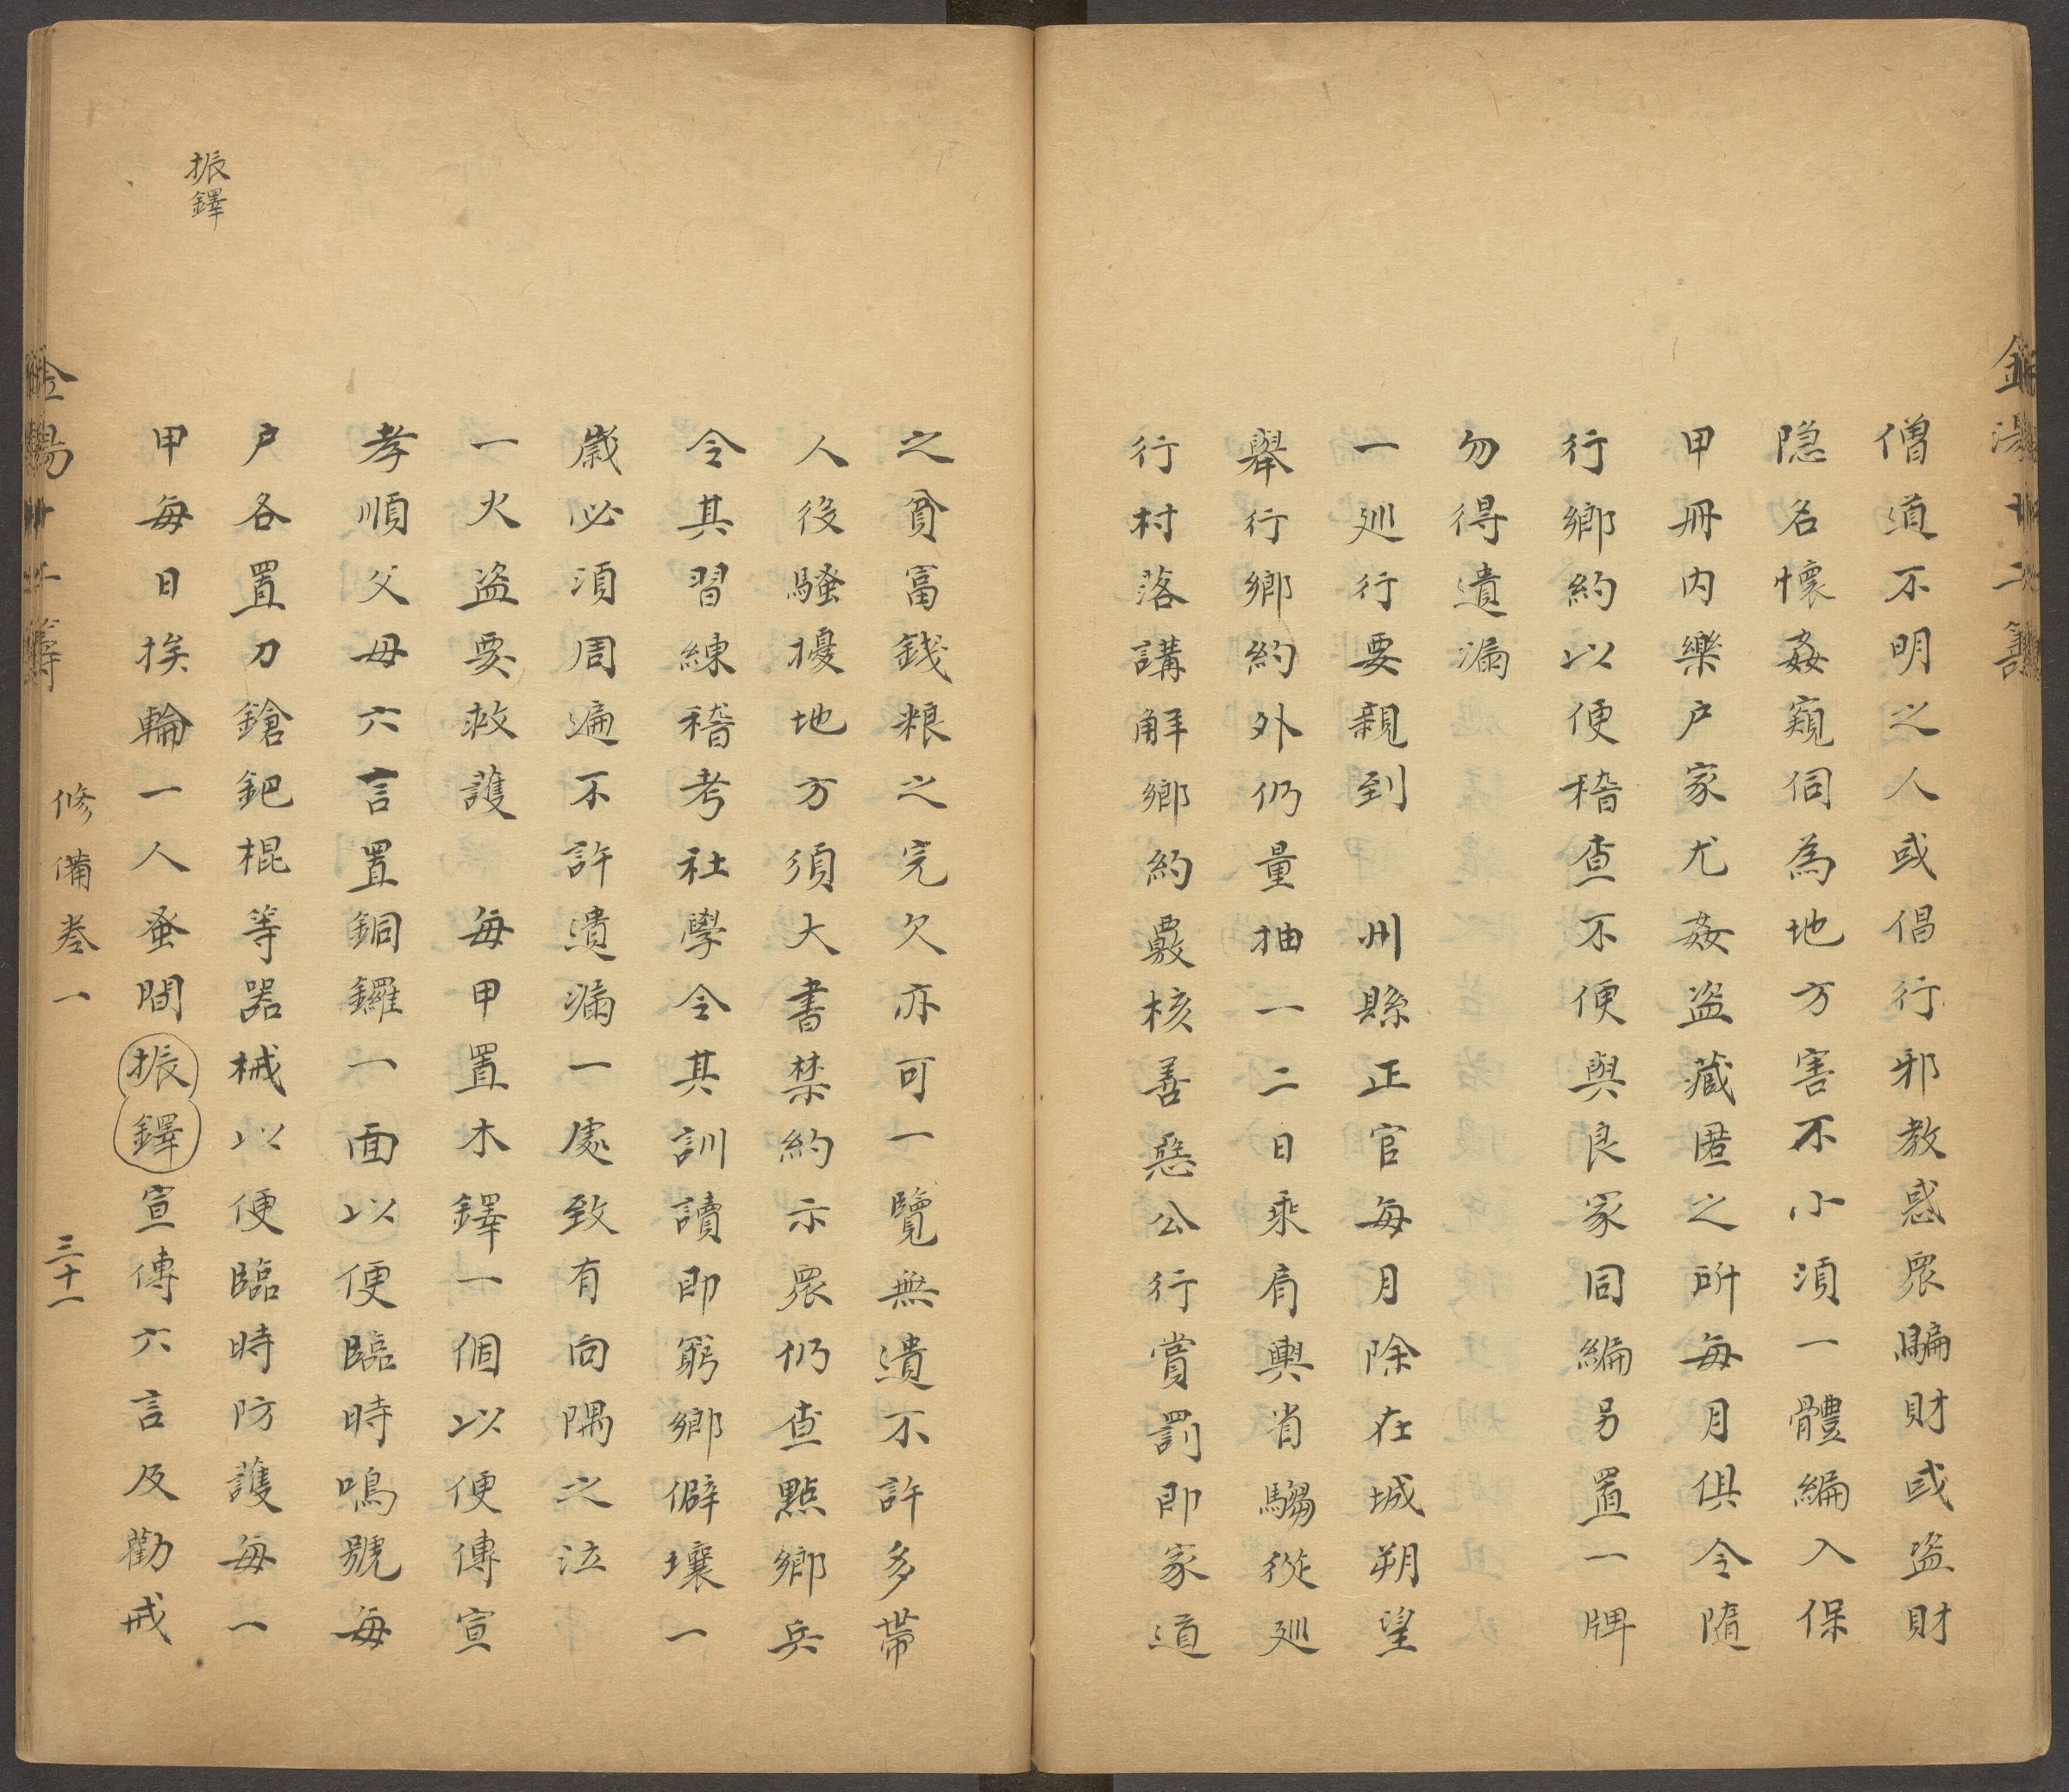 僧道不明之人或倡行邪教惑眾騙財或盗財
隐名懷姦窺伺為地方害不小湏一體編入保
甲冊内樂户家尤姦盗藏匿之所每月俱令隨
行鄉約以便稽查不便與良家同編另置一牌
勿得遺漏
一廵行要親到　州縣正官每月除在城朔望
舉行鄉約外仍量抽一二日乘肩輿省騶從廵
行村落講解鄉約覈核善惡公行賞罰即家道
之貧富錢粮之完欠亦可一覽無遺不許多帶
人役騷擾地方須大書禁約示眾仍查點鄉兵
令其習練稽考社學令其訓讀即窮鄉僻壤一
歲必湏周遍不許遺漏一處致有向隅之泣
一火盗要救護　每甲置木鐸一個以便傳宣
孝順父母六言置銅鑼一面以便臨時鳴號每
户各置刀鎗鈀棍等器械以便臨時防護每一
甲每日挨輪一人蚤間振鐸宣傳六言及勸戒
振鐸
修備卷一
三十一